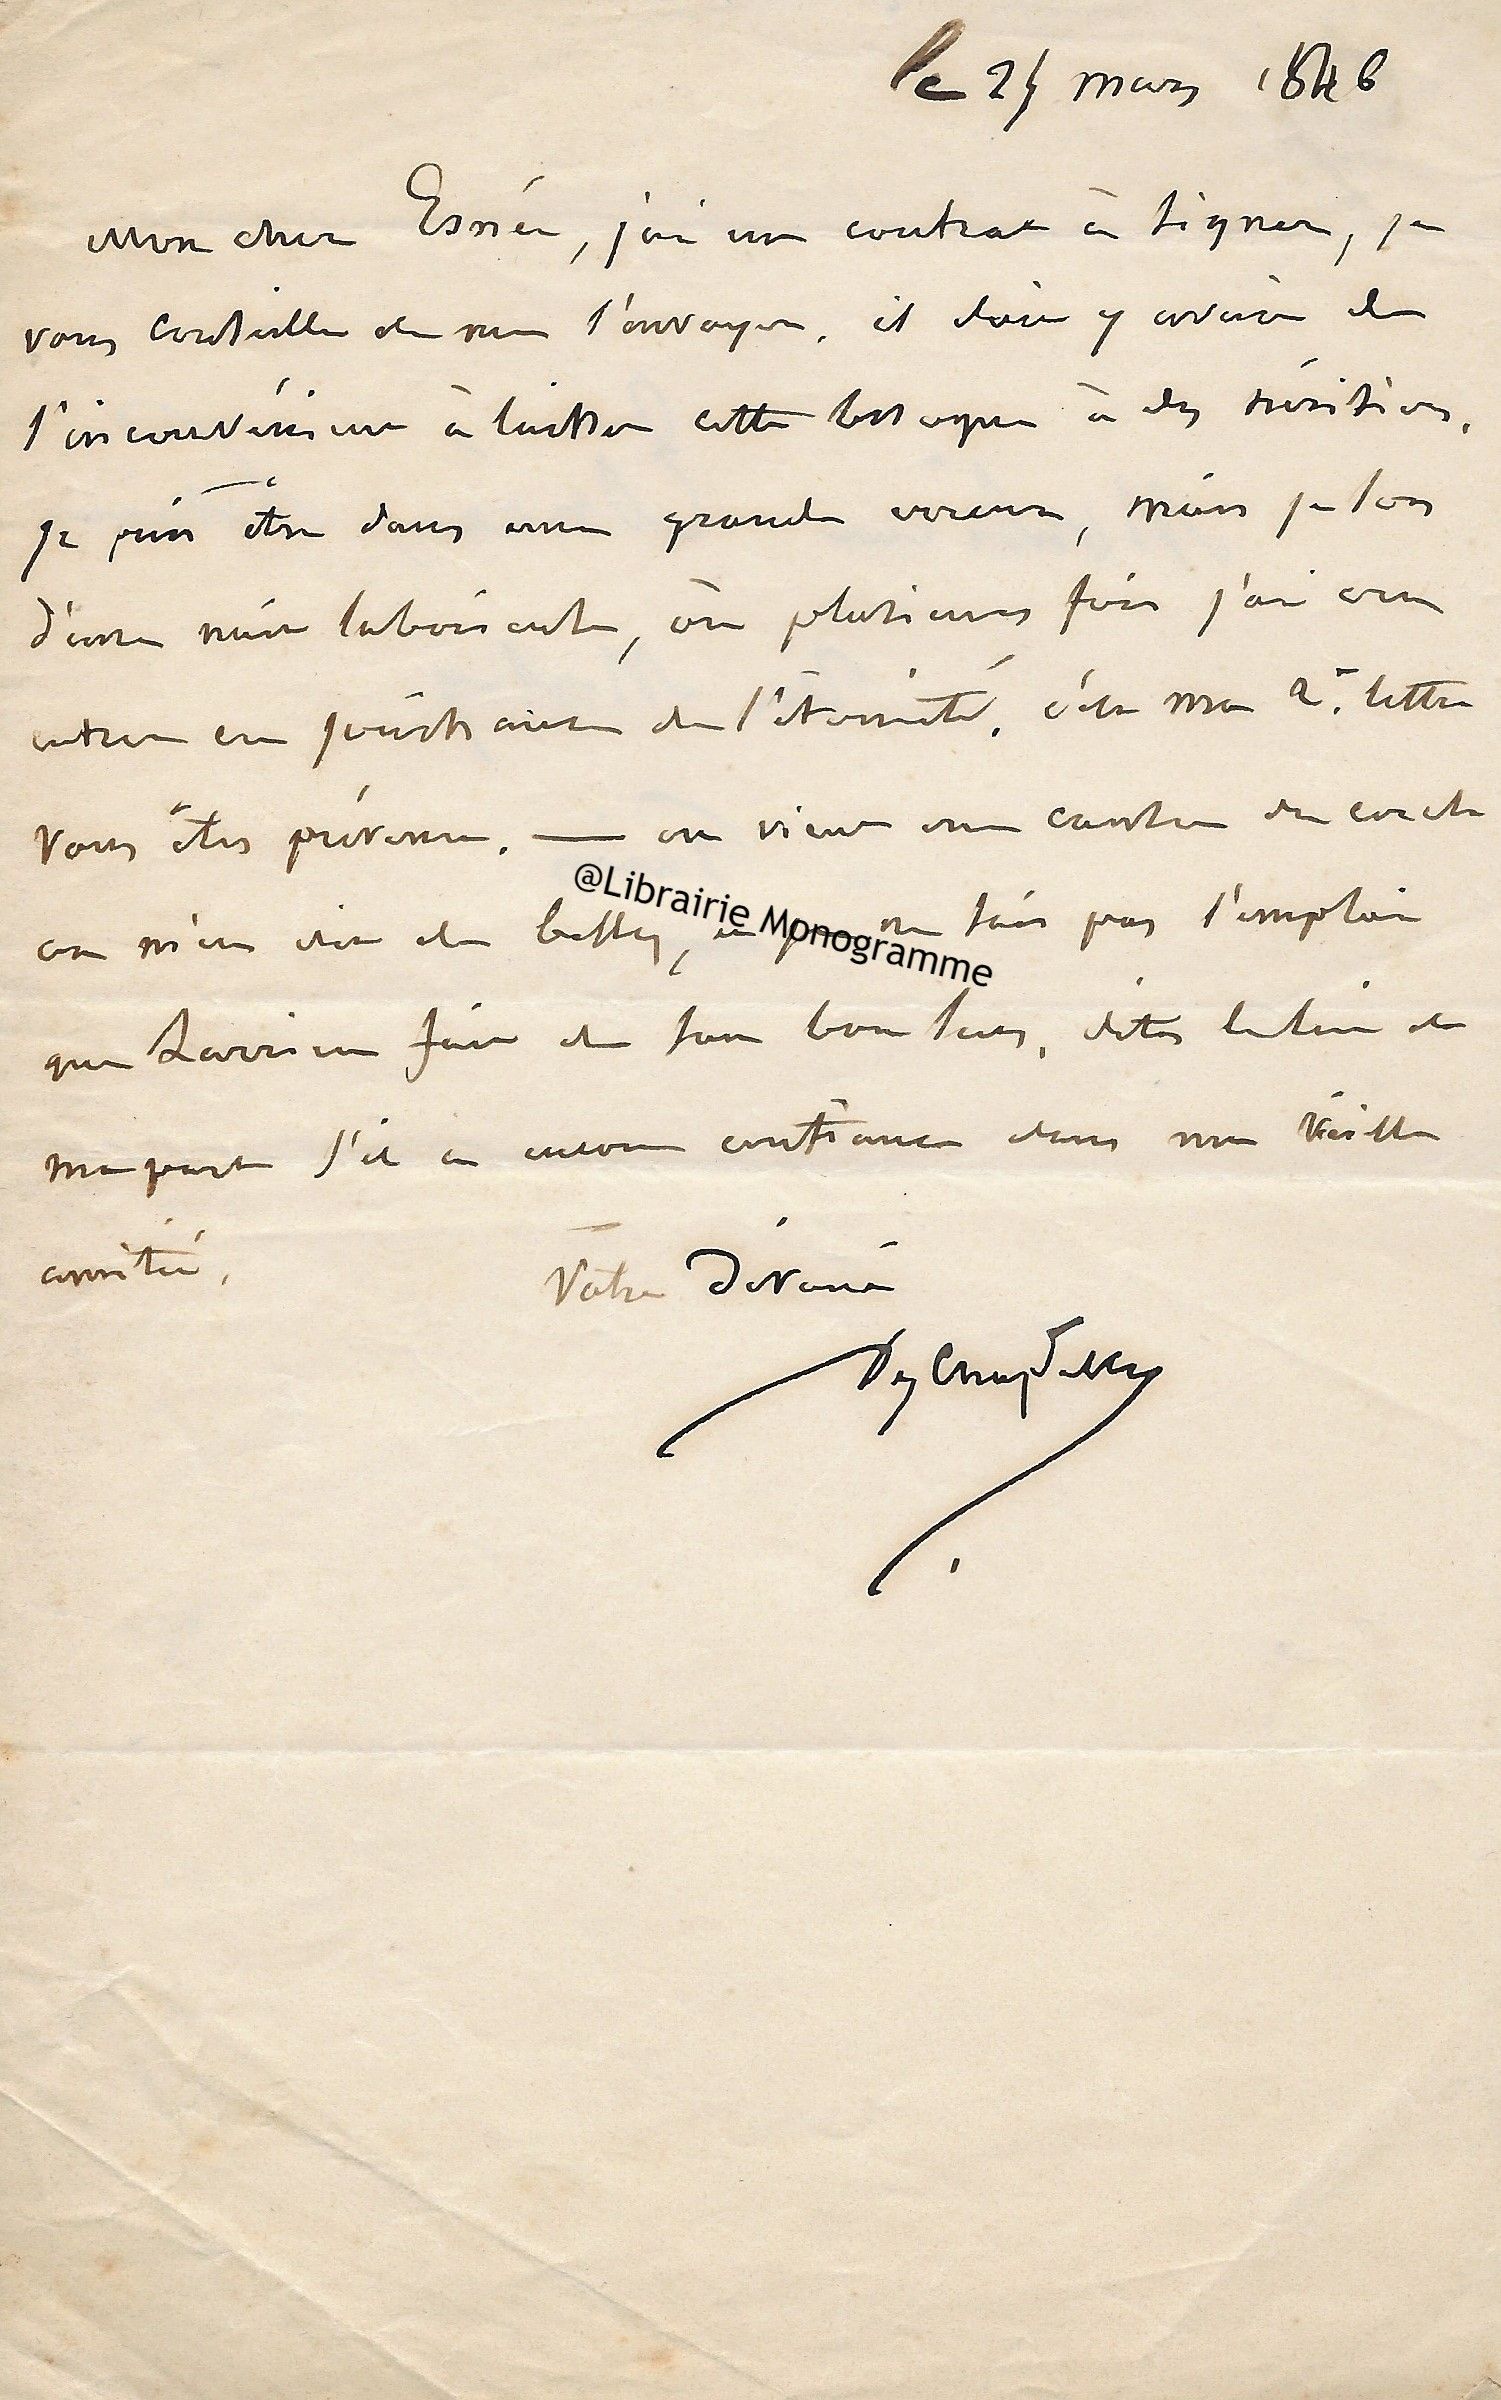 le 24 mars 1846
Mon cher Esnée, j'ai un contrat à signer, je
vous conseille de me l'envoyer. il doit y avoir de
l'inconvénient à laisser cette besogne à des héritiers.
je puis être dans une grande erreur, mais je sors
d'une nuit laborieuse, où plusieurs fois j'ai cru
entrer en jouissance de l'éternité. c'est ma 2e lettre
vous êtes prévenu. — on vient me
on m'en dit de belles, je ne fais pas l'emploi
que Larrieu fait de son bon sens. dites le lui de
ma part s'il a encore confiance dans ma vieille
amitié.
votre dévoué
@Librairie Monogramme